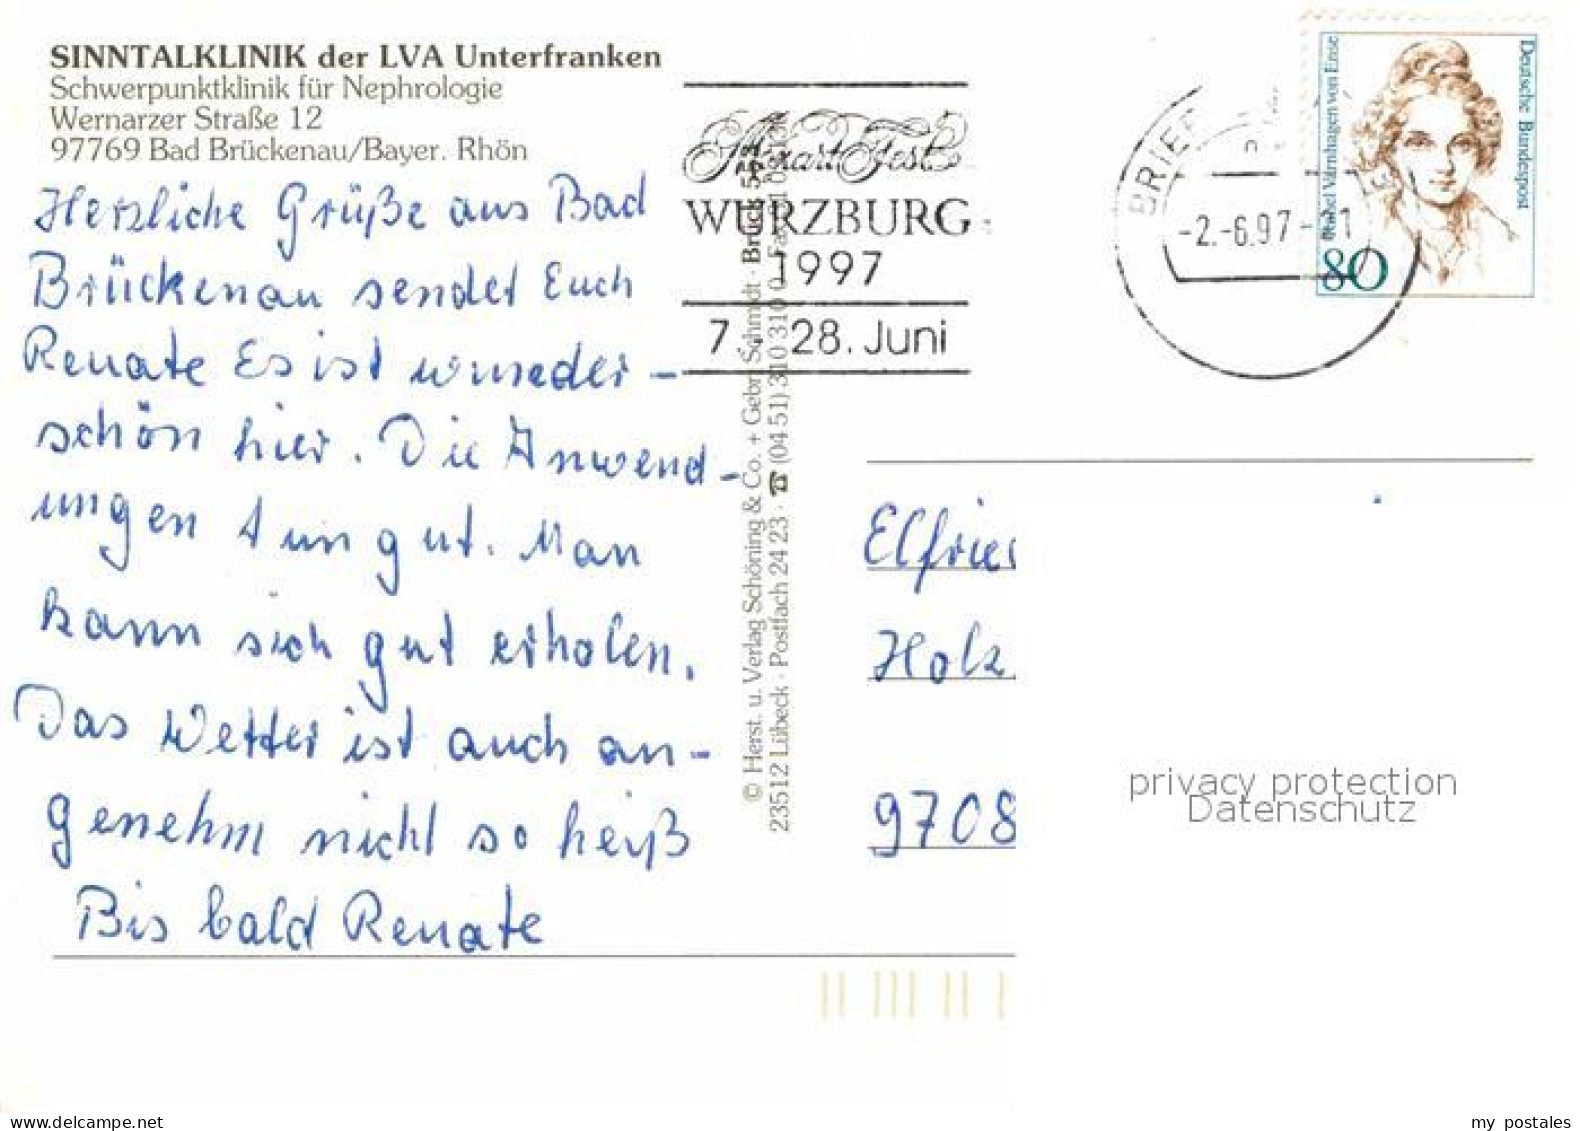 SINNTALKLINIK der LVA Unterfranken
Schwerpunktklinik für Nephrologie
Wernarzer Straße 12
97769 Bad Brückenau/Bayer. Rhön
Herzliche Grüße aus Bad
Brückenau sendet Euch
Renate Es ist wunder-
schön hier. Die Anwend-
ungen tun gut. Man
kann sich gut erholen.
Das Wetter ist auch an-
genehm nicht so heiß
Bis bald Renate
Mozart Fest
WÜRZBURG
1997
7. - 28. Juni
© Herst. u. Verlag Schöning & Co. + Gebr. Schmidt · Brück
23512 Lübeck · Postfach 24 23 · ☎ (04 51) 310 310 0
BRIEF
-2.-6.97
Deutsche Bundespost
Rahel Varnhagen von Ense
80
Elfrie
Holz
9708
privacy protection
Datenschutz
www.delcampe.net
my postales